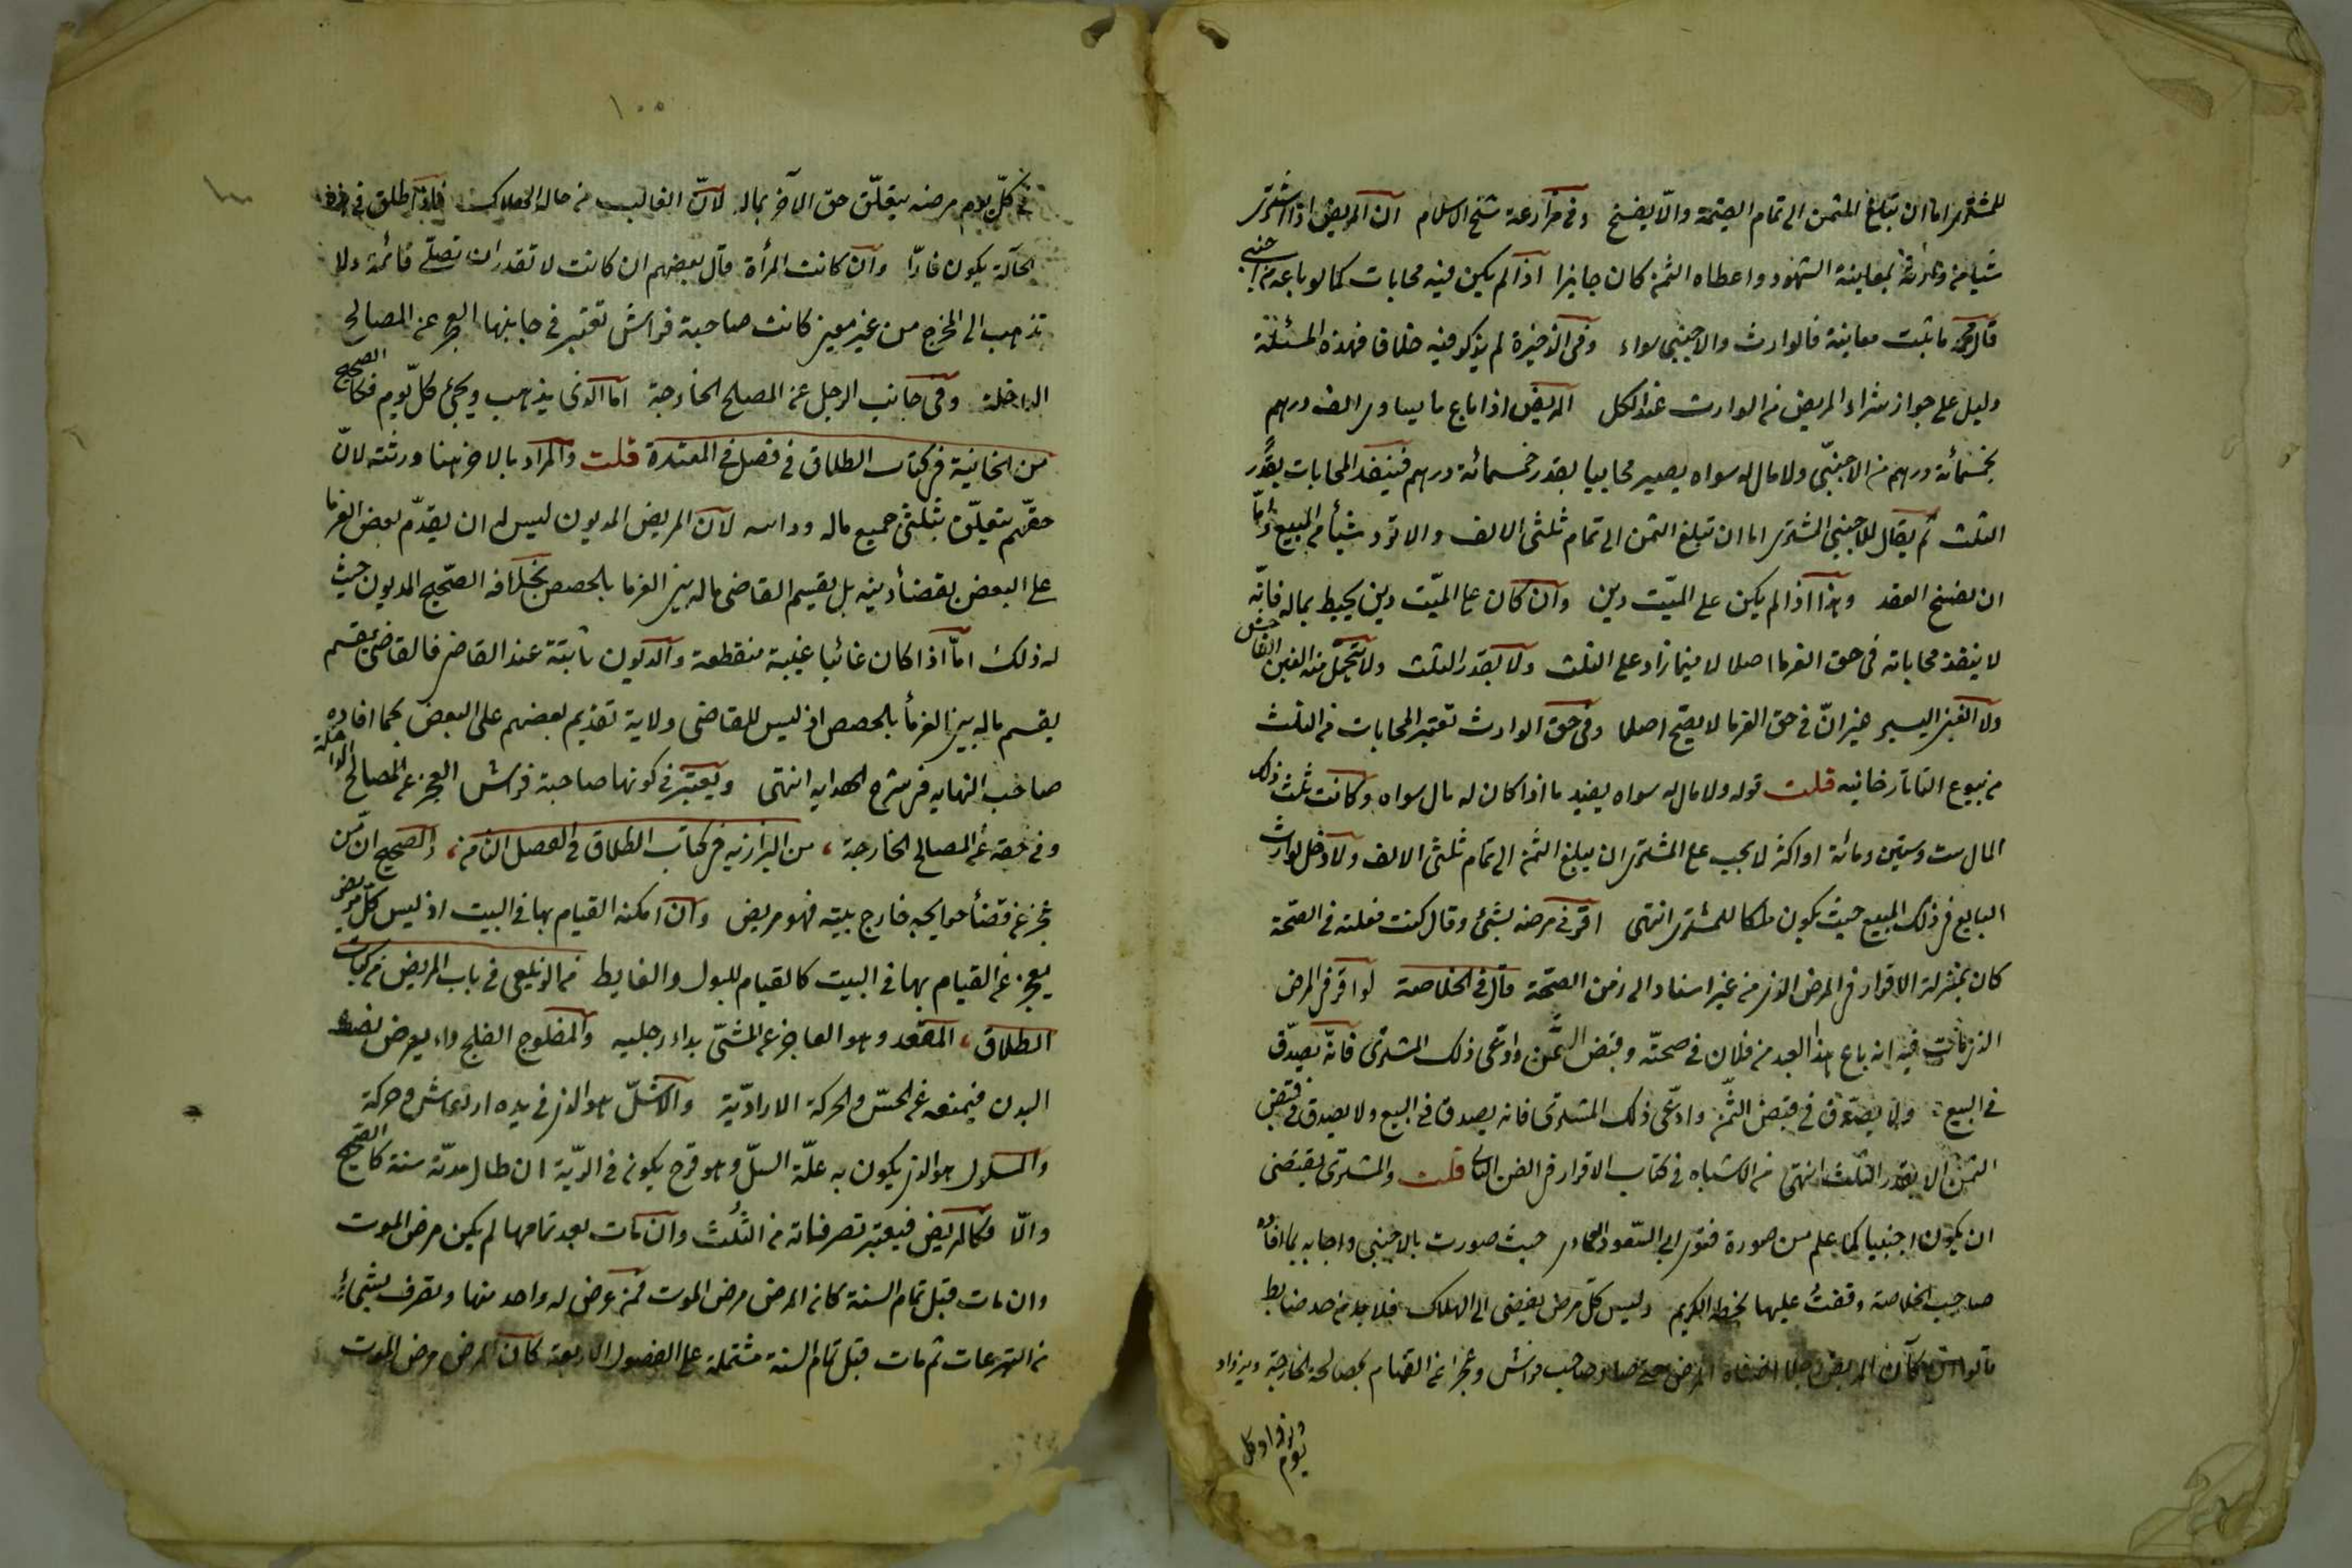 للمشتري اما ان تبلغ الثمن الى تمام القيمة والا يفسخ وفي مزارعة شيخ الاسلام ان المريض اذا اشترى
شيأ من وارثه بمعاينة الشهود واعطاه الثمن كان جايزا اذا لم يكن فيه محابات كما لو باعه من اجنبي
قال محمد ما ثبت معاينة فالوارث والاجنبي سواء وفي الذخيرة لم يذكر فيه خلافا فهذه المسئلة
دليل على جواز شراء المريض من الوارث عند الكل المريض اذا باع ما يساوي الف درهم
بخمسمائة درهم من الاجنبي ولا مال له سواه يصير محابيا بقدر خمسمائة درهم فينفذ المحابات بقدر
الثلث ثم يقال للاجنبي المشتري اما ان تبلغ الثمن الى تمام ثلثي الالف والا ترد شيأ من المبيع واما
ان يفسخ العقد وهذا اذا لم يكن على الميت دين وان كان على الميت دين يحيط بماله فانه
لا ينفذ محاباته في حق الغرما اصلا لا فيما زاد على الثلث ولا بقدر الثلث ولا يتحمل منه الغبن الفاحش
ولا الغبن اليسير غير ان في حق الغرما لا يصح اصلا وفي حق الوارث تعتبر المحابات من الثلث
من بيوع التاتارخانيه قلت قوله ولا مال له سواه يفيد ما اذا كان له مال سواه وكانت ثلث ذلك
المال ست وستين ومائة او اكثر لا يجب على المشتري ان يبلغ الثمن الى تمام ثلثي الالف ولا دخل لوارث
البايع في ذلك المبيع حيث يكون ملكا للمشتري انتهى اقر في مرضه بشئ وقال كنت فعلته في الصحة
كان بمنزلة الاقرار في المرض الذي من غير اسناد الى زمن الصحة قال في الخلاصة لو اقر في المرض
الذي مات فيه انه باع هذا العبد من فلان في صحته وقبض الثمن وادعى ذلك المشتري فانه يصدق
في البيع ولا يصدق في قبض الثمن وادعى ذلك المشتري فانه يصدق في البيع ولا يصدق في قبض
الثمن الا بقدر الثلث انتهى من الاشباه في كتاب الاقرار في الفن الثاني قلت والمشتري يقتضي
ان يكون اجنبيا كما علم من صورة فتوى ابي السعود العمادي حيث صورت بالاجنبي واجابه بما افاده
صاحب الخلاصة وقفت عليها بخطه الكريم وليس كل مرض يفضي الى الهلاك فلا بد من حد ضابط
قالوا ان كان المريض رجلا اضناه المرض حتى صار صاحب فراش وعجز عن القيام بمصالحه الخارجة ويزداد
يوم
في كل يوم مرضه يتعلق حق الآخر بماله لان الغالب من حاله الهلاك فاذا طلق في هذه
الحالة يكون فارا وان كانت المرأة قال بعضهم ان كانت لا تقدر ان تصلي قائمة ولا
تذهب الى المخرج من غير معين كانت صاحبة فراش تعتبر في جانبها العجز عن المصالح
الداخلة وفي جانب الرجل عن المصالح الخارجة اما الذي يذهب ويجئ كل يوم فكالصحيح
من الخانية في كتاب الطلاق في فصل في المعتدة قلت والمراد بالاخر هنا ورثته لان
حقهم يتعلق بثلثي جميع ماله لان المريض المديون ليس له ان يقدم بعض الغرما
على البعض بقضأ دينه بل يقسم القاضي ماله بين الغرما بالحصص بخلافه الصحيح المديون حيث
له ذلك اما اذا كان غائبا غيبة منقطعة والديون ثابتة عند القاضي فالقاضي يقسم
يقسم ماله بين الغرمأ بالحصص اذ ليس للقاضي ولاية تقديم بعضهم على البعض كما افاده
صاحب النهايه في شرح الهدايه انتهى ويعتبر في كونها صاحبة فراش العجز عن المصالح الداخلة
وفي حقه عن المصالح الخارجة، من البزازيه في كتاب الطلاق في الفصل الثامن، والصحيح ان من
عجز عن قضأ حوايجه خارج بيته فهو مريض وان امكنه القيام بها في البيت اذ ليس كل مريض
يعجز عن القيام بها في البيت كالقيام للبول والغايط من الزيلعي في باب المريض من كتاب
الطلاق، المقعد وهو العاجز عن المشي بداء رجليه والمفلوج الفلج داء يعرض نصف
البدن فيمنعه عن الحس والحركة الارادية والاشل هو الذي في يده ارتعاش وحركة
والمسلول هو الذي يكون به علة السل وهو قرح يكون في الرية ان طال مدته سنة كالصحيح
والا فكالمريض فيعتبر تصرفاته من الثلث وان مات بعد تمامها لم يكن مرض الموت
وان مات قبل تمام السنة كان المرض مرض الموت فمن عرض له واحد منها وتصرف بشئ
من التبرعات ثم مات قبل تمام السنة مشتملة على الفصول الاربعة كان المرض مرض الموت
١٠٠